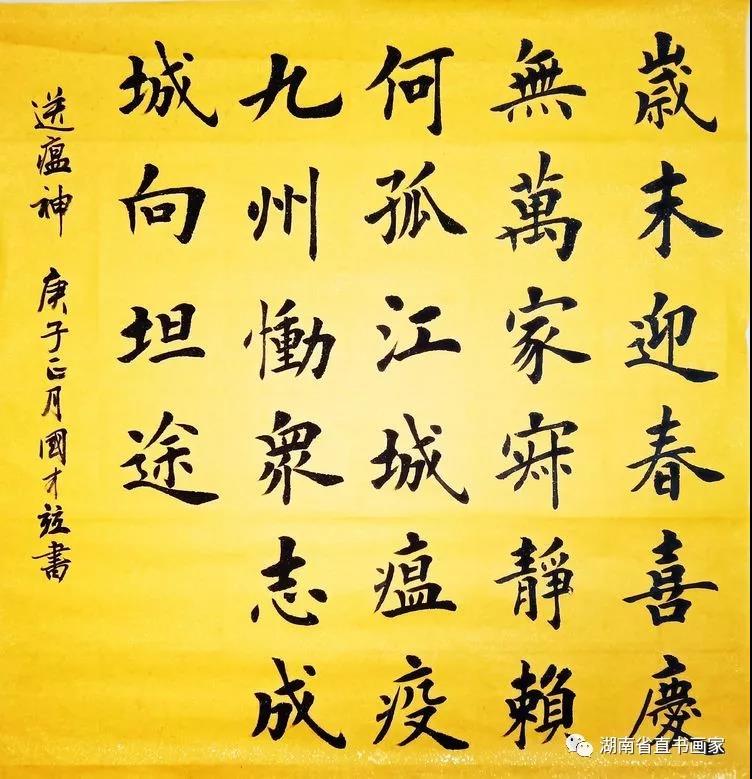 歲末迎春喜慶
無萬家寂靜賴
何孤江城瘟疫
九州慟衆志成
城向坦途
送瘟神 庚子正月國才並書
湖南省直书画家